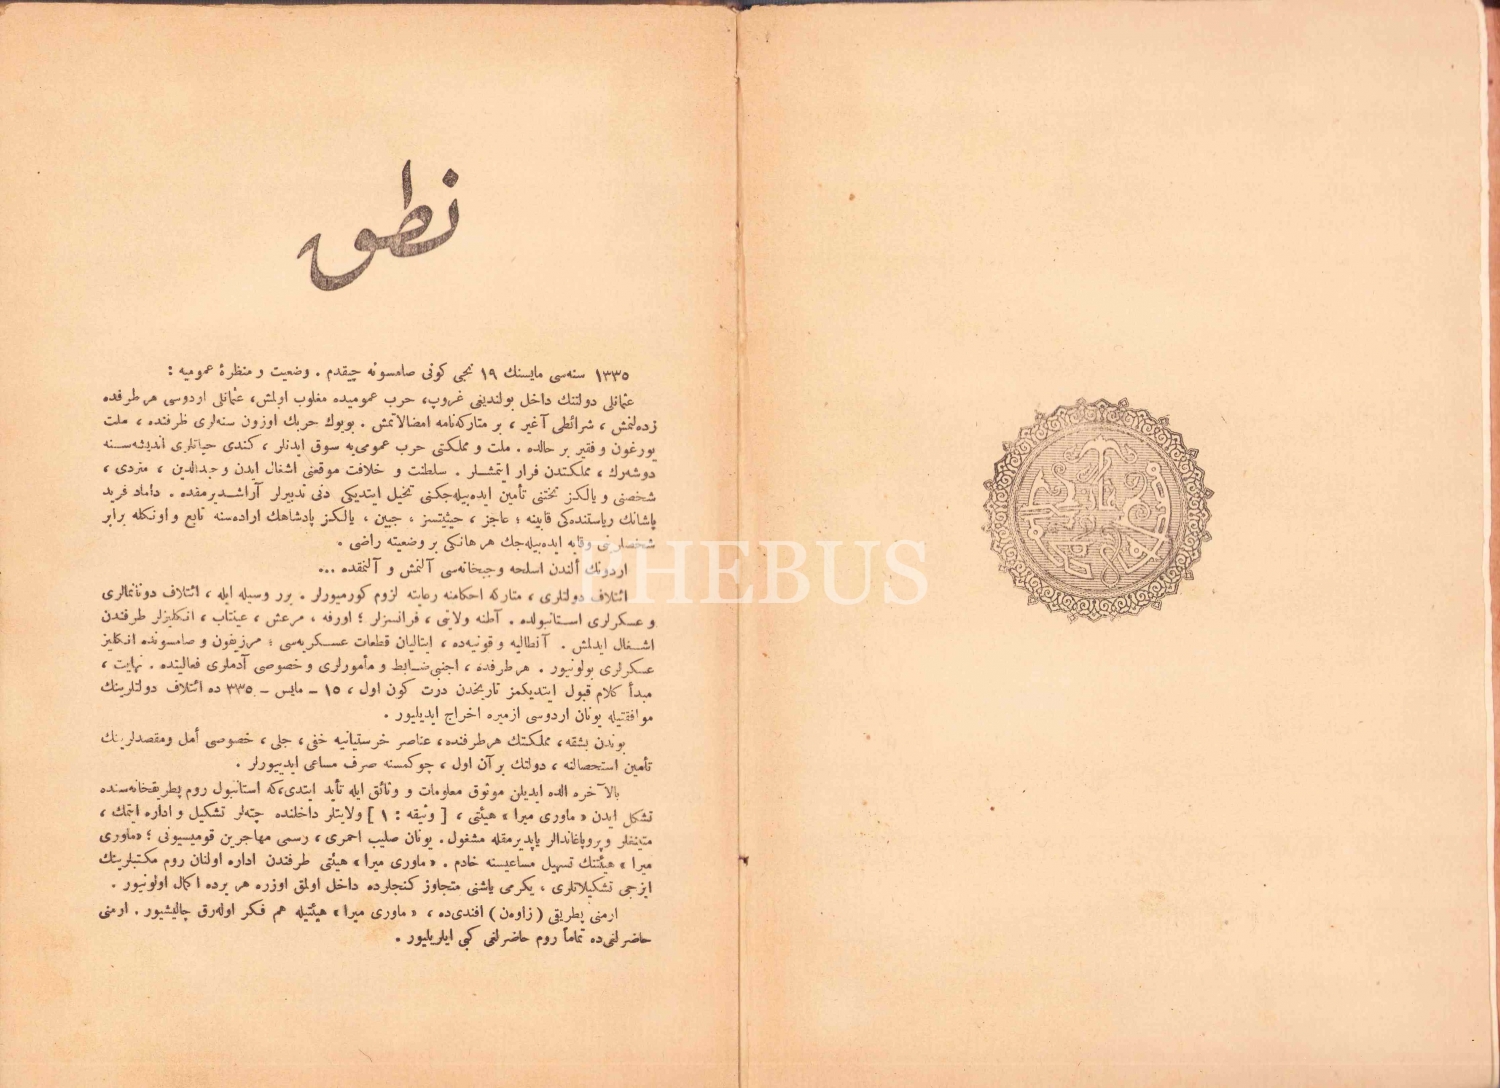 نطق
١٣٣٥ سنه‌سی مایسنك ١٩ نجی كونی صامسونه چیقدم . وضعیت و منظرۀ عمومیه :
عثمانلی دولتنك داخل بولندیغی غروپ، حرب عمومیده مغلوب اولمش، عثمانلی اردوسی هر طرفده
زده‌لنمش ، شرائطی آغیر ، بر متاركه‌نامه امضالانمش . بویوك حربك اوزون سنه‌لری ظرفنده ، ملت
یورغون و فقیر بر حالده . ملت و مملكتی حرب عمومی‌یه سوق ایدنلر ، كندی حیاتلری اندیشه‌سنه
دوشه‌رك ، مملكتدن فرار ایتمشلر . سلطنت و خلافت موقعنی اشغال ایدن وحیدالدین ، متردی ،
شخصنی و یالكز تختنی تأمین ایده‌بیله‌جكنی تخیل ایتدیكی دنی تدبیرلر آراشدیرمقده . داماد فرید
پاشانك ریاستنده‌كی قابینه ؛ عاجز ، حیثیتسز ، جبین ، یالكز پادشاهك اراده‌سنه تابع و اونكله برابر
شخصلرینی وقایه ایده‌بیله‌جك هر هانكی بر وضعیته راضی .
اردونك ألندن اسلحه و جبخانه‌سی آلنمش و آلنمقده ...
ائتلاف دولتلری ، متاركه احكامنه رعایته لزوم كورمیورلر . برر وسیله ایله ، ائتلاف دونانمالری
و عسكرلری استانبولده . آطنه ولایتی ، فرانسزلر ؛ اورفه ، مرعش ، عینتاب ، انكلیزلر طرفندن
اشغال ایدلمش . آنطالیه و قونیه‌ده ، ایتالیان قطعات عسكریه‌سی ؛ مرزیفون و صامسونده انكلیز
عسكرلری بولونیور . هر طرفده ، اجنبی ضابط و مأمورلری و خصوصی آدملری فعالیتده . نهایت ،
مبدأ كلام قبول ایتدیكمز تاریخدن درت كون اول ، ١٥ - مایس - ٣٣٥ ده ائتلاف دولتلرینك
موافقتیله یونان اردوسی ازمیره اخراج ایدیلیور .
بوندن بشقه ، مملكتك هر طرفنده ، عناصر خرستیانیه خفی ، جلی ، خصوصی أمل و مقصدلرینك
تأمین استحصالنه ، دولتك بر آن اول ، چوكمسنه صرف مساعی ایدییورلر .
بالآخره الده ایدیلن موثوق معلومات و وثائق ایله تأید ایتدی‌كه استانبول روم پطریقخانه‌سنده
تشكل ایدن « ماوری میرا » هیئتی ، [ وثیقه : ١ ] ولایتلر داخلنده چته‌لر تشكیل و اداره ایتمك ،
متینغلر و پروپاغاندالر یاپدیرمقله مشغول . یونان صلیب احمری ، رسمی مهاجرین قومیسیونی ؛ « ماوری
میرا » هیئتنك تسهیل مساعیسنه خادم . « ماوری میرا » هیئتی طرفندن اداره اولنان روم مكتبلرینك
ایزجی تشكیلاتلری ، یكرمی یاشنی متجاوز كنجلرده داخل اولمق اوزره هر یرده اكمال اولونیور .
ارمنی پطریقی ( زاوه‌ن ) افندی‌ده ، « ماوری میرا » هیئتیله هم فكر اوله‌رق چالیشیور . ارمنی
حاضرلغی‌ده تماماً روم حاضرلغی كبی ایلریلیور .
PHEBUS